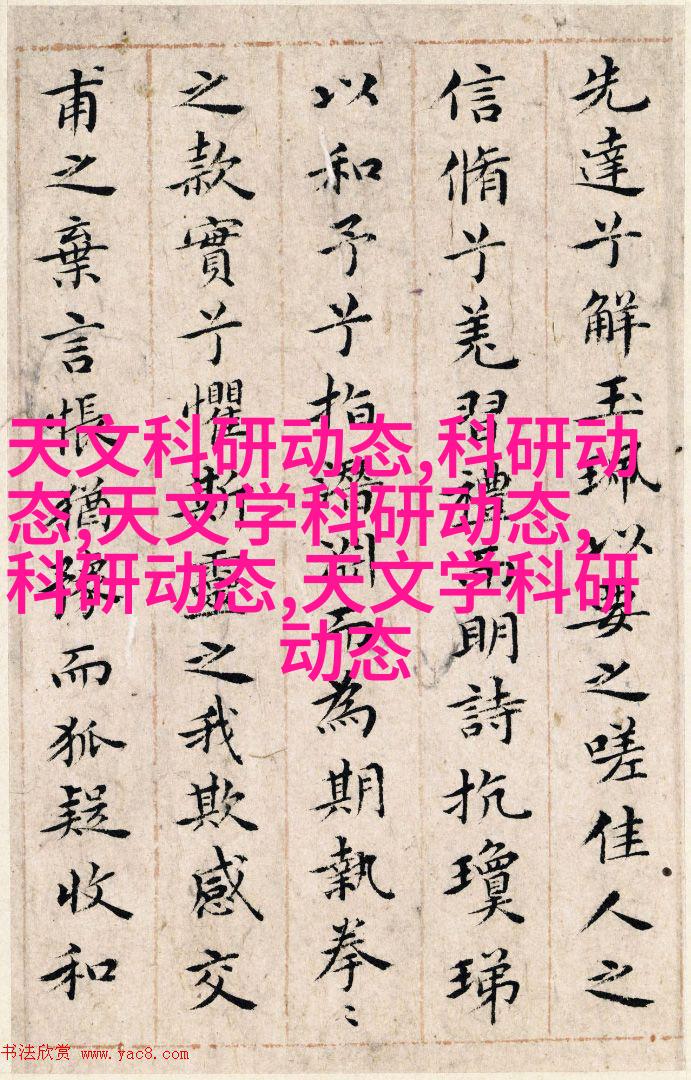 先達兮解玉珮以要之嗟佳人之
信脩兮羌習禮而明詩抗瓊珶
以和予兮指潛淵而為期執拳〻
之款實兮懼斯靈之我欺感交
甫之棄言悵猶豫而狐疑收和
天文科研动态,科研动
态,天文学科研动态,
科研动态,天文学科研
动态
书法欣赏 www.yac8.com